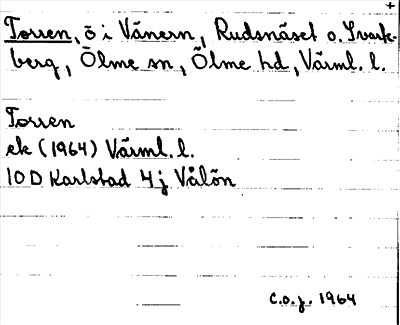 +
Torren, ö i Vänern, Rudsnäset o. Svark-
berg, Ölme sn, Ölme hd, Värml. l.
Torren
ek (1964) Värml. l.
10 D Karlstad 4 j Vålön
C.o.j. 1964